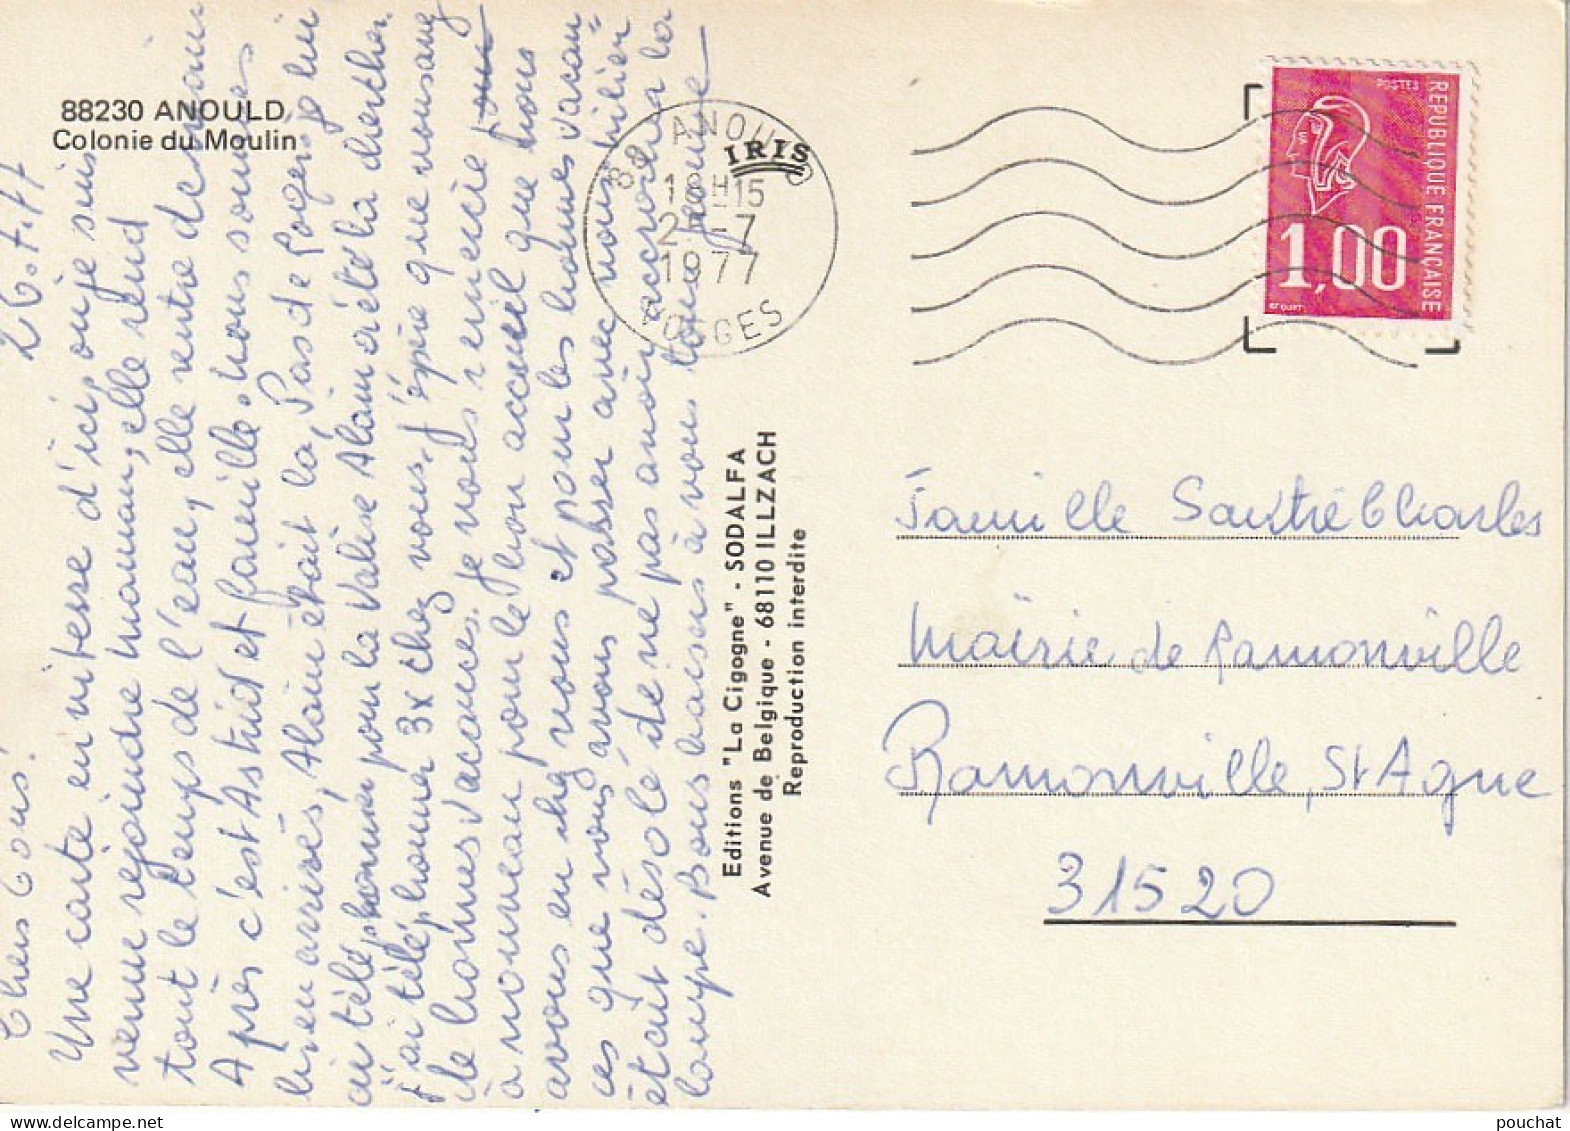 88230 ANOULD
Colonie du Moulin
26.7.77
Chers tous.
Une carte en vitesse d'ici, où je suis
venue rejoindre maman, elle rend
tout le temps de l'eau, elle rentre demain
Après c'est Astrid et famille. nous sommes
bien arrivés, Alain était la, Pas de Roger, je lui
ai téléphoner pour la valise Alain a été la chercher
j'ai téléphoner 3x chez vous. j'éspère que vous avez
de bonnes vacances. je vous remercie tous
à nouveau pour le bon accueil que nous
avons eu chez vous et pour les bonnes vacan=
ces que vous avons passer avec vous
était désolé de ne pas avoir raccroché la
loupe. Bons baisers à vous tous
88 ANOULD
18H15
2 -7
1977
VOSGES
IRIS
POSTES
REPUBLIQUE FRANÇAISE
1,00
Editions "La Cigogne" - SODALFA
Avenue de Belgique - 68110 ILLZACH
Reproduction interdite
Famille Charles
Mairie de Ramonville
Ramonville, St Agne
31520
pouchat